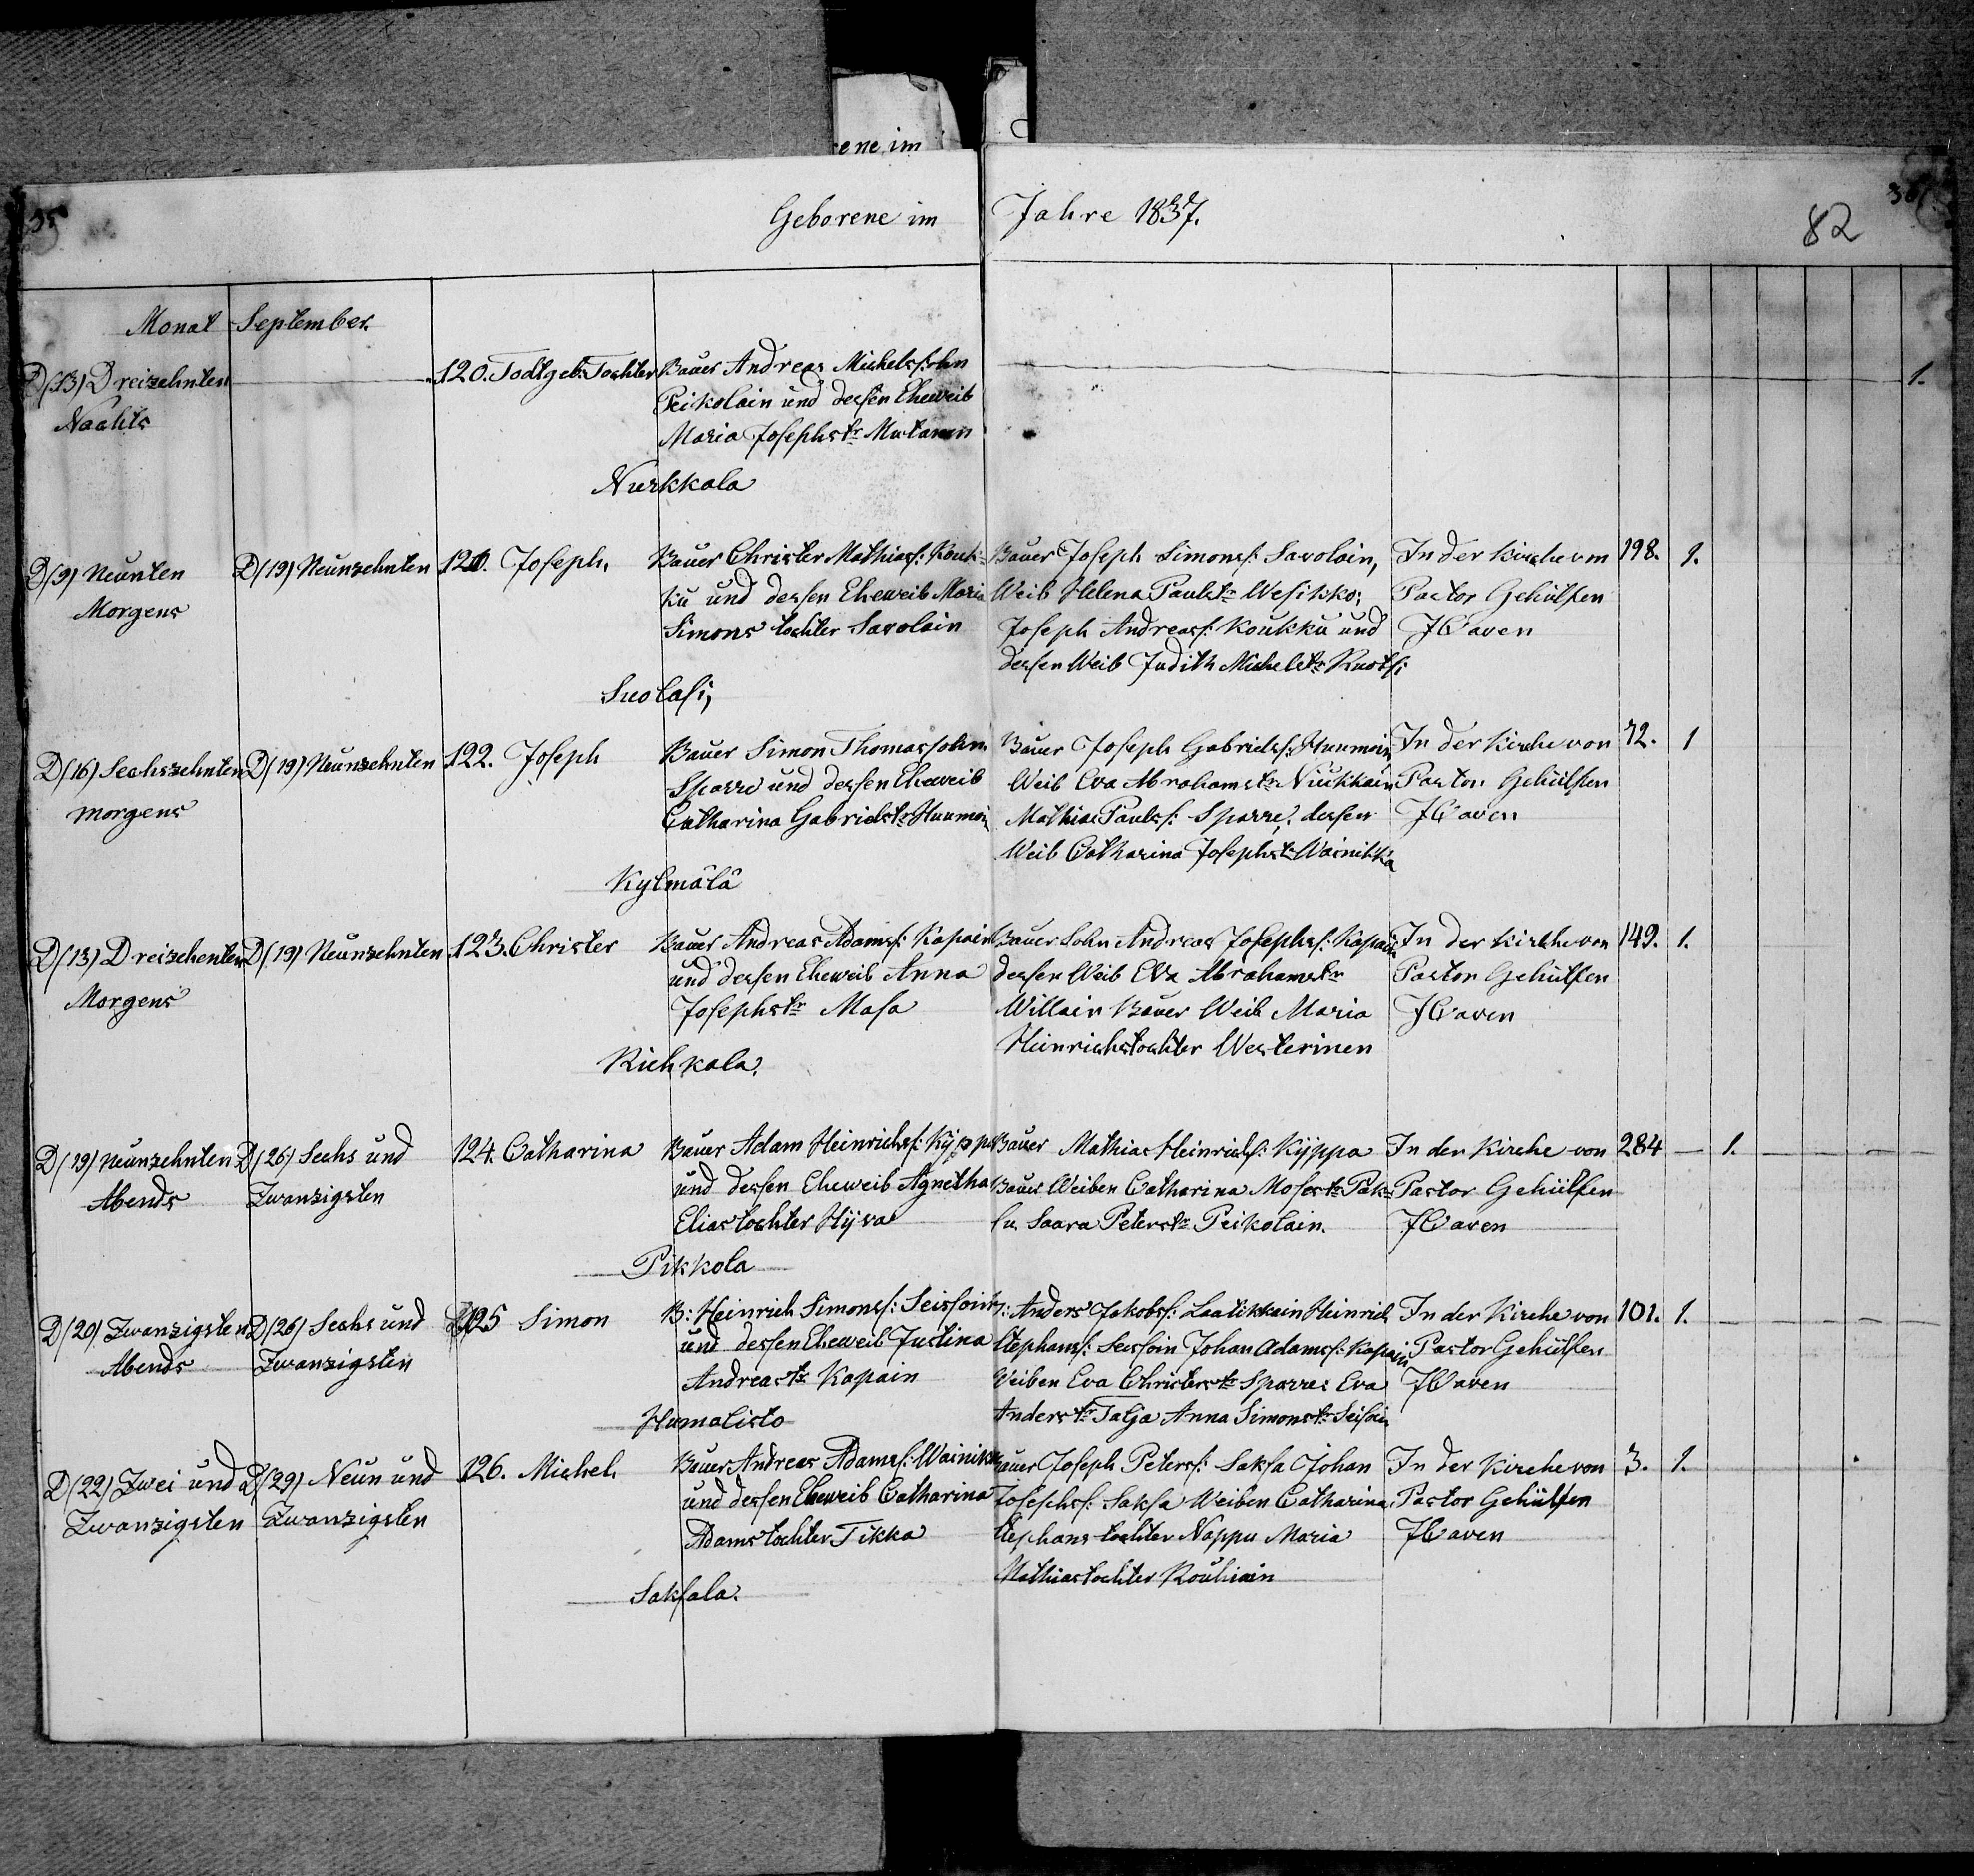 ene im
35
Geborene im Jahre 1837.
82
36
Monat September.
D (13) Dreizehnten
Nachts
120. Todtgeb. Tochter
Bauer Andreas Michelssohn
Peikolain und dessen Eheweib
Maria Josephstr Mutanen
1.
Nurkkala
D (9) Neunten
Morgens
D (19) Neunzehnten
121. Joseph.
Bauer Christer Mathiass: Kouk-
ku und dessen Eheweib Maria
Simons tochter Savolain
Bauer Joseph Simonss: Savolain,
Weib Helena Paulstr Wesikko;
Joseph Andreass: Koukku und
dessen Weib Judith Michelstr Ruotsi
In der Kirche vom
Pastor Gehülfen
JHaven
198.
1.
Suolasi,
D (16) Sechszehnten
morgens
D (19) Neunzehnten
122. Joseph
Bauer Simon Thomassohn
Sparre und dessen Eheweib
Catharina Gabrielstr Huumoin
Bauer Joseph Gabrielss: Huumoin
Weib Eva Abrahamstr Niukkain
Mathias Paulss: Sparre, dessen
Weib Catharina Josephstr Wainikka
In der Kirche von
Pastor Gehülfen
JHaven
72.
1
Kylmälä
D (13) Dreizehenten
Morgens
D (19) Neunzehnten
123. Christer
Bauer Andreas Adamss: Kapain
und dessen Eheweib Anna
Josephstr Masa
Bauer Sohn Andreas Josephss: Kapain
dessen Weib Eva Abrahamstr
Willain Bauer Weib Maria
Heinrichstochter Westerinen
In der Kirche von
Pastor Gehülfen
JHaven
149.
1.
Riehkala.
D (19) neunzehnten
Abends
D (26) Sechs und
Zwanzigsten
124. Catharina
Bauer Adam Heinrichs: Kyppa
und dessen Eheweib Agnetha
Eliastochter Hyva
Bauer Mathias Heinrichs: Kyppa
Bauer Weiben Catharina Mosestr Pak-
Saara Peterstr Peikolain.
In der Kirche von
Pastor Gehülfen
JHaven
284
1.
Pikkola
D (20) Zwanzigsten
Abends
D (26) Sechs und
Zwanzigsten
125 Simon
B: Heinrich Simonss: Seissoin
und dessen Eheweib Justina
Andreastr Kapain
B: Anders Jakobs: Laatikkain Heinrich
Stephanss: Seissoin Johan Adamss: Kapain
Weiben Eva Christerstr Sparre: Eva
Anderstr Talja Anna Simonstr Seisoin
In der Kirche von
Pastor Gehülfen
JHaven
101.
1.
Humalisto
D (22) Zwei und
Zwanzigsten
D (29) Neun und
Zwanzigsten
126. Michel.
Bauer Andreas Adamss: Wainikka
und dessen Eheweib Catharina
Adamstochter Tikka
Bauer Joseph Peterss: Saksa Johan
Josephss: Saksa Weiben Catharina
Stephans tochter Nappu Maria
Mathiastochter Rouhiain
In der Kirche von
Pastor Gehülfen
JHaven
3.
1.
Saksala.